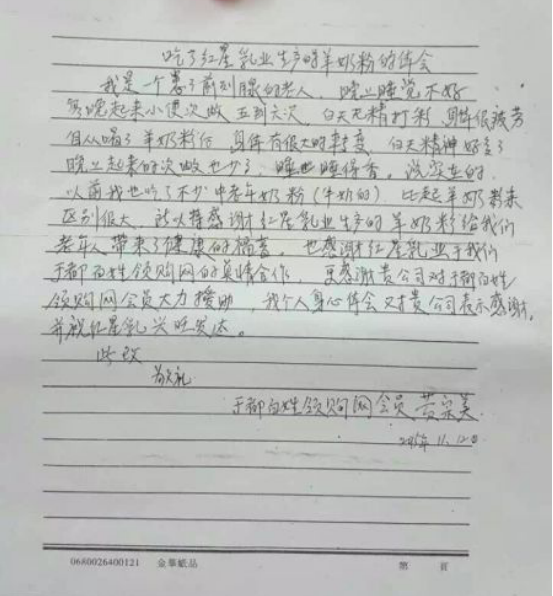 吃了红星乳业生产的羊奶粉的体会
我是一个患了前列腺的老人，晚上睡觉不好
每晚起来小便次做五到六次，白天无精打彩，身体很疲劳
自从喝了羊奶粉后，身体有很大的转变，白天精神好多了
晚上起来的次数也少了，睡也睡得香。说实在的，
以前我也吃了不少中老年奶粉（牛奶的），比起羊奶粉来
区别很大，所以特感谢红星乳业生产的羊奶粉给我们
老年人带来了健康的福音，也感谢红星乳业于我们
于都百姓领购网的真情合作，更感谢贵公司对于都百姓
领购网会员大力援助，我个人身心体会又对贵公司表示感谢，
并祝红星乳兴旺发达。
此致
敬礼
于都百姓领购网会员 黄宗美
2015年11.12日
0680026400121 金華紙品 第 頁